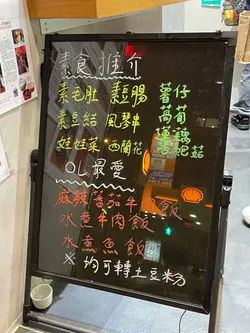 素食推介
素毛肚 素豆腸 薯仔
素豆結 風琴串 萵筍
娃娃菜 西蘭花 蓮藕
菇菇
OL最愛
麻辣蕃茄牛 飯
水煮牛肉飯
水煮魚飯
※均可轉土豆粉